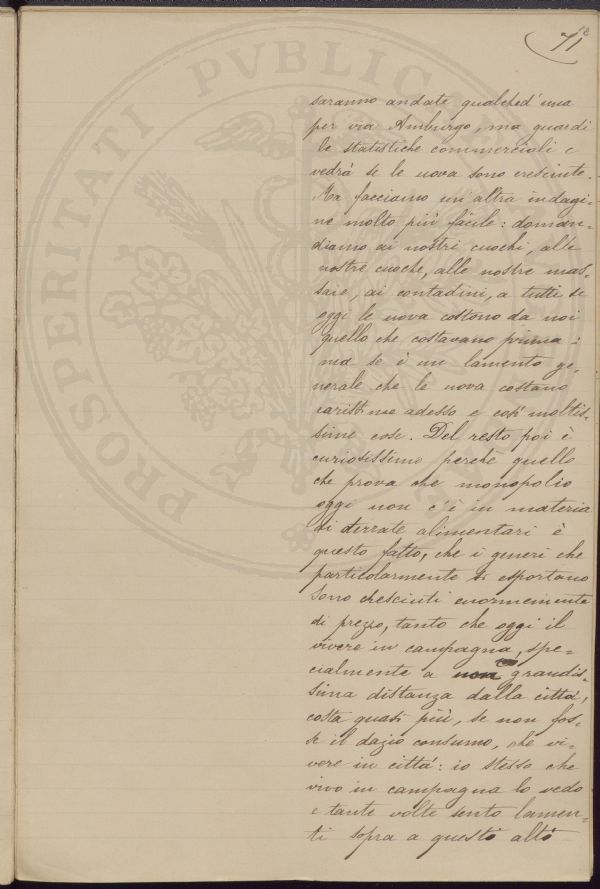 71
saranno andate qualched'una
per via Amburgo, ma guardi
le statistiche commerciali e
vedrà se le uova sono cresciute.
Ma facciamo un'altra indagi-
ne molto più facile: doman-
diamo ai nostri cuochi, alle
nostre cuoche, alle nostre mas-
saie, ai contadini, a tutti se
oggi le uova costono da noi
quello che costavano prima:
ma se è un lamento ge-
nerale che le uova costano
carissime adesso e così moltis-
sime cose. Del resto poi è
curiosissimo perchè quello
che prova che monopolio
oggi non c'è in materia
di derrate alimentari è
questo fatto, che i generi che
particolarmente si esportano
sono cresciuti enormemente
di prezzo, tanto che oggi il
vivere in campagna, spe-
cialmente a non grandis-
sima distanza dalla città,
costa quasi più, se non fos-
se il dazio consumo, che vi-
vere in città: io stesso che
vivo in campagna lo vedo
e tante volte sento lamen-
ti sopra a questo alto
PROSPERITATI PVBLICAE